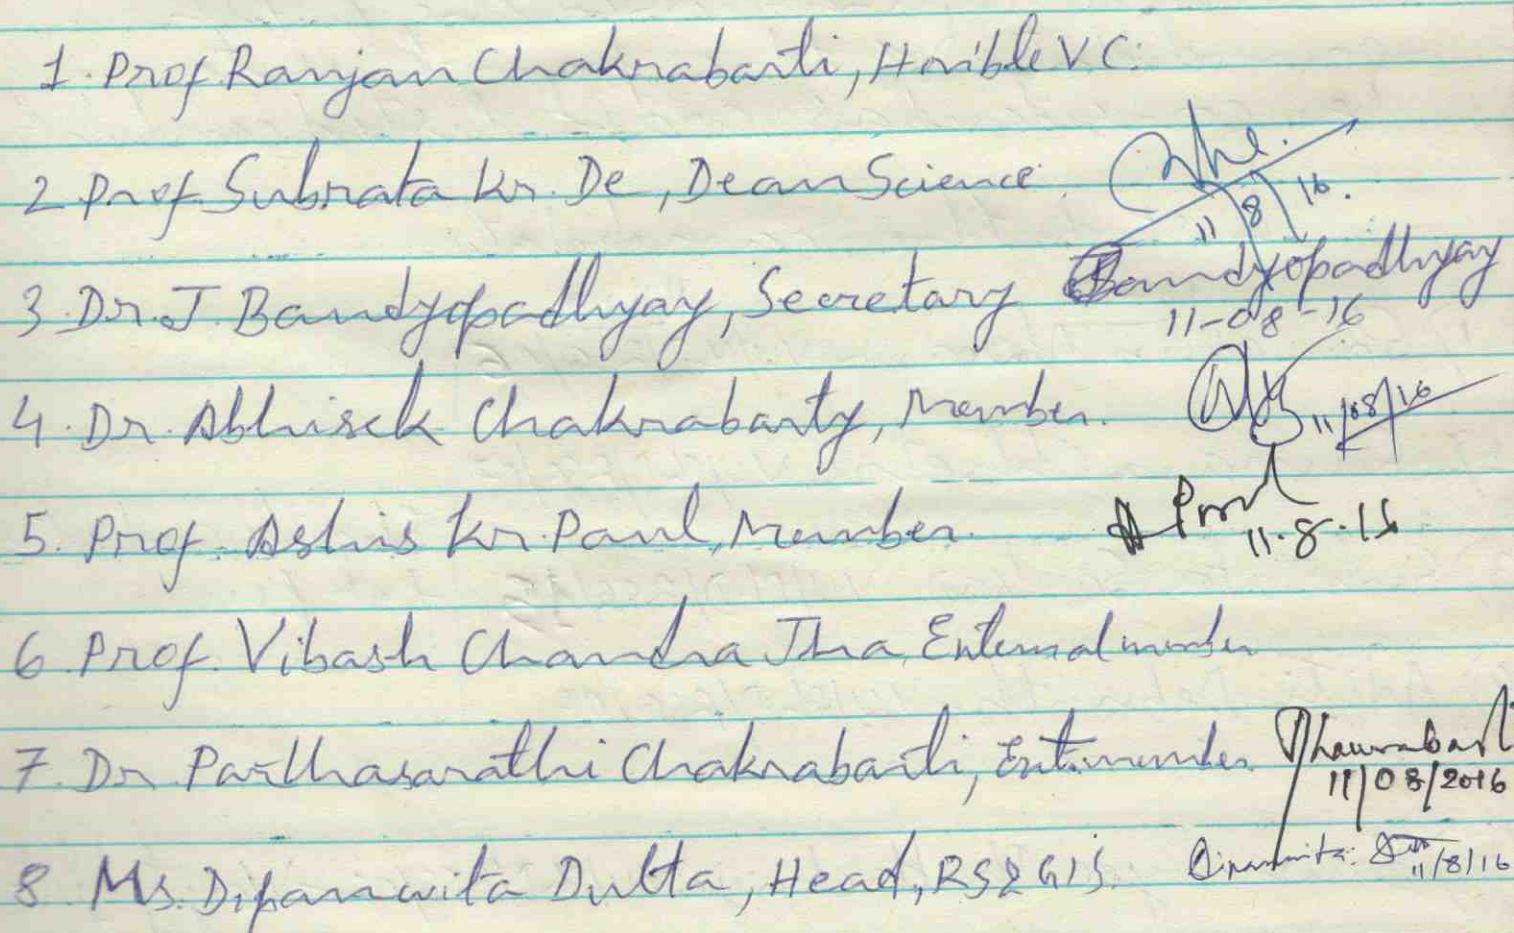 1. Prof. Ranjan Chakrabarti, Hon'ble V C.
2 Prof. Subrata Kr. De, Dean Science. 11 8 16.
3. Dr. J. Bandyopadhyay, Secretary Bandyopadhyay
11-08-16
4. Dr. Abhisek Chakrabarty, Member. 11/08/16
5. Prof. Ashis Kr. Paul, Member.
11.8.16
6 Prof. Vibash Chandra Jha, External member
7. Dr Parthasarathi Chakrabarti, Ext. member
11/08/2016
8 Ms. Dipanwita Dutta, Head, RS & GIS. 11/8/16